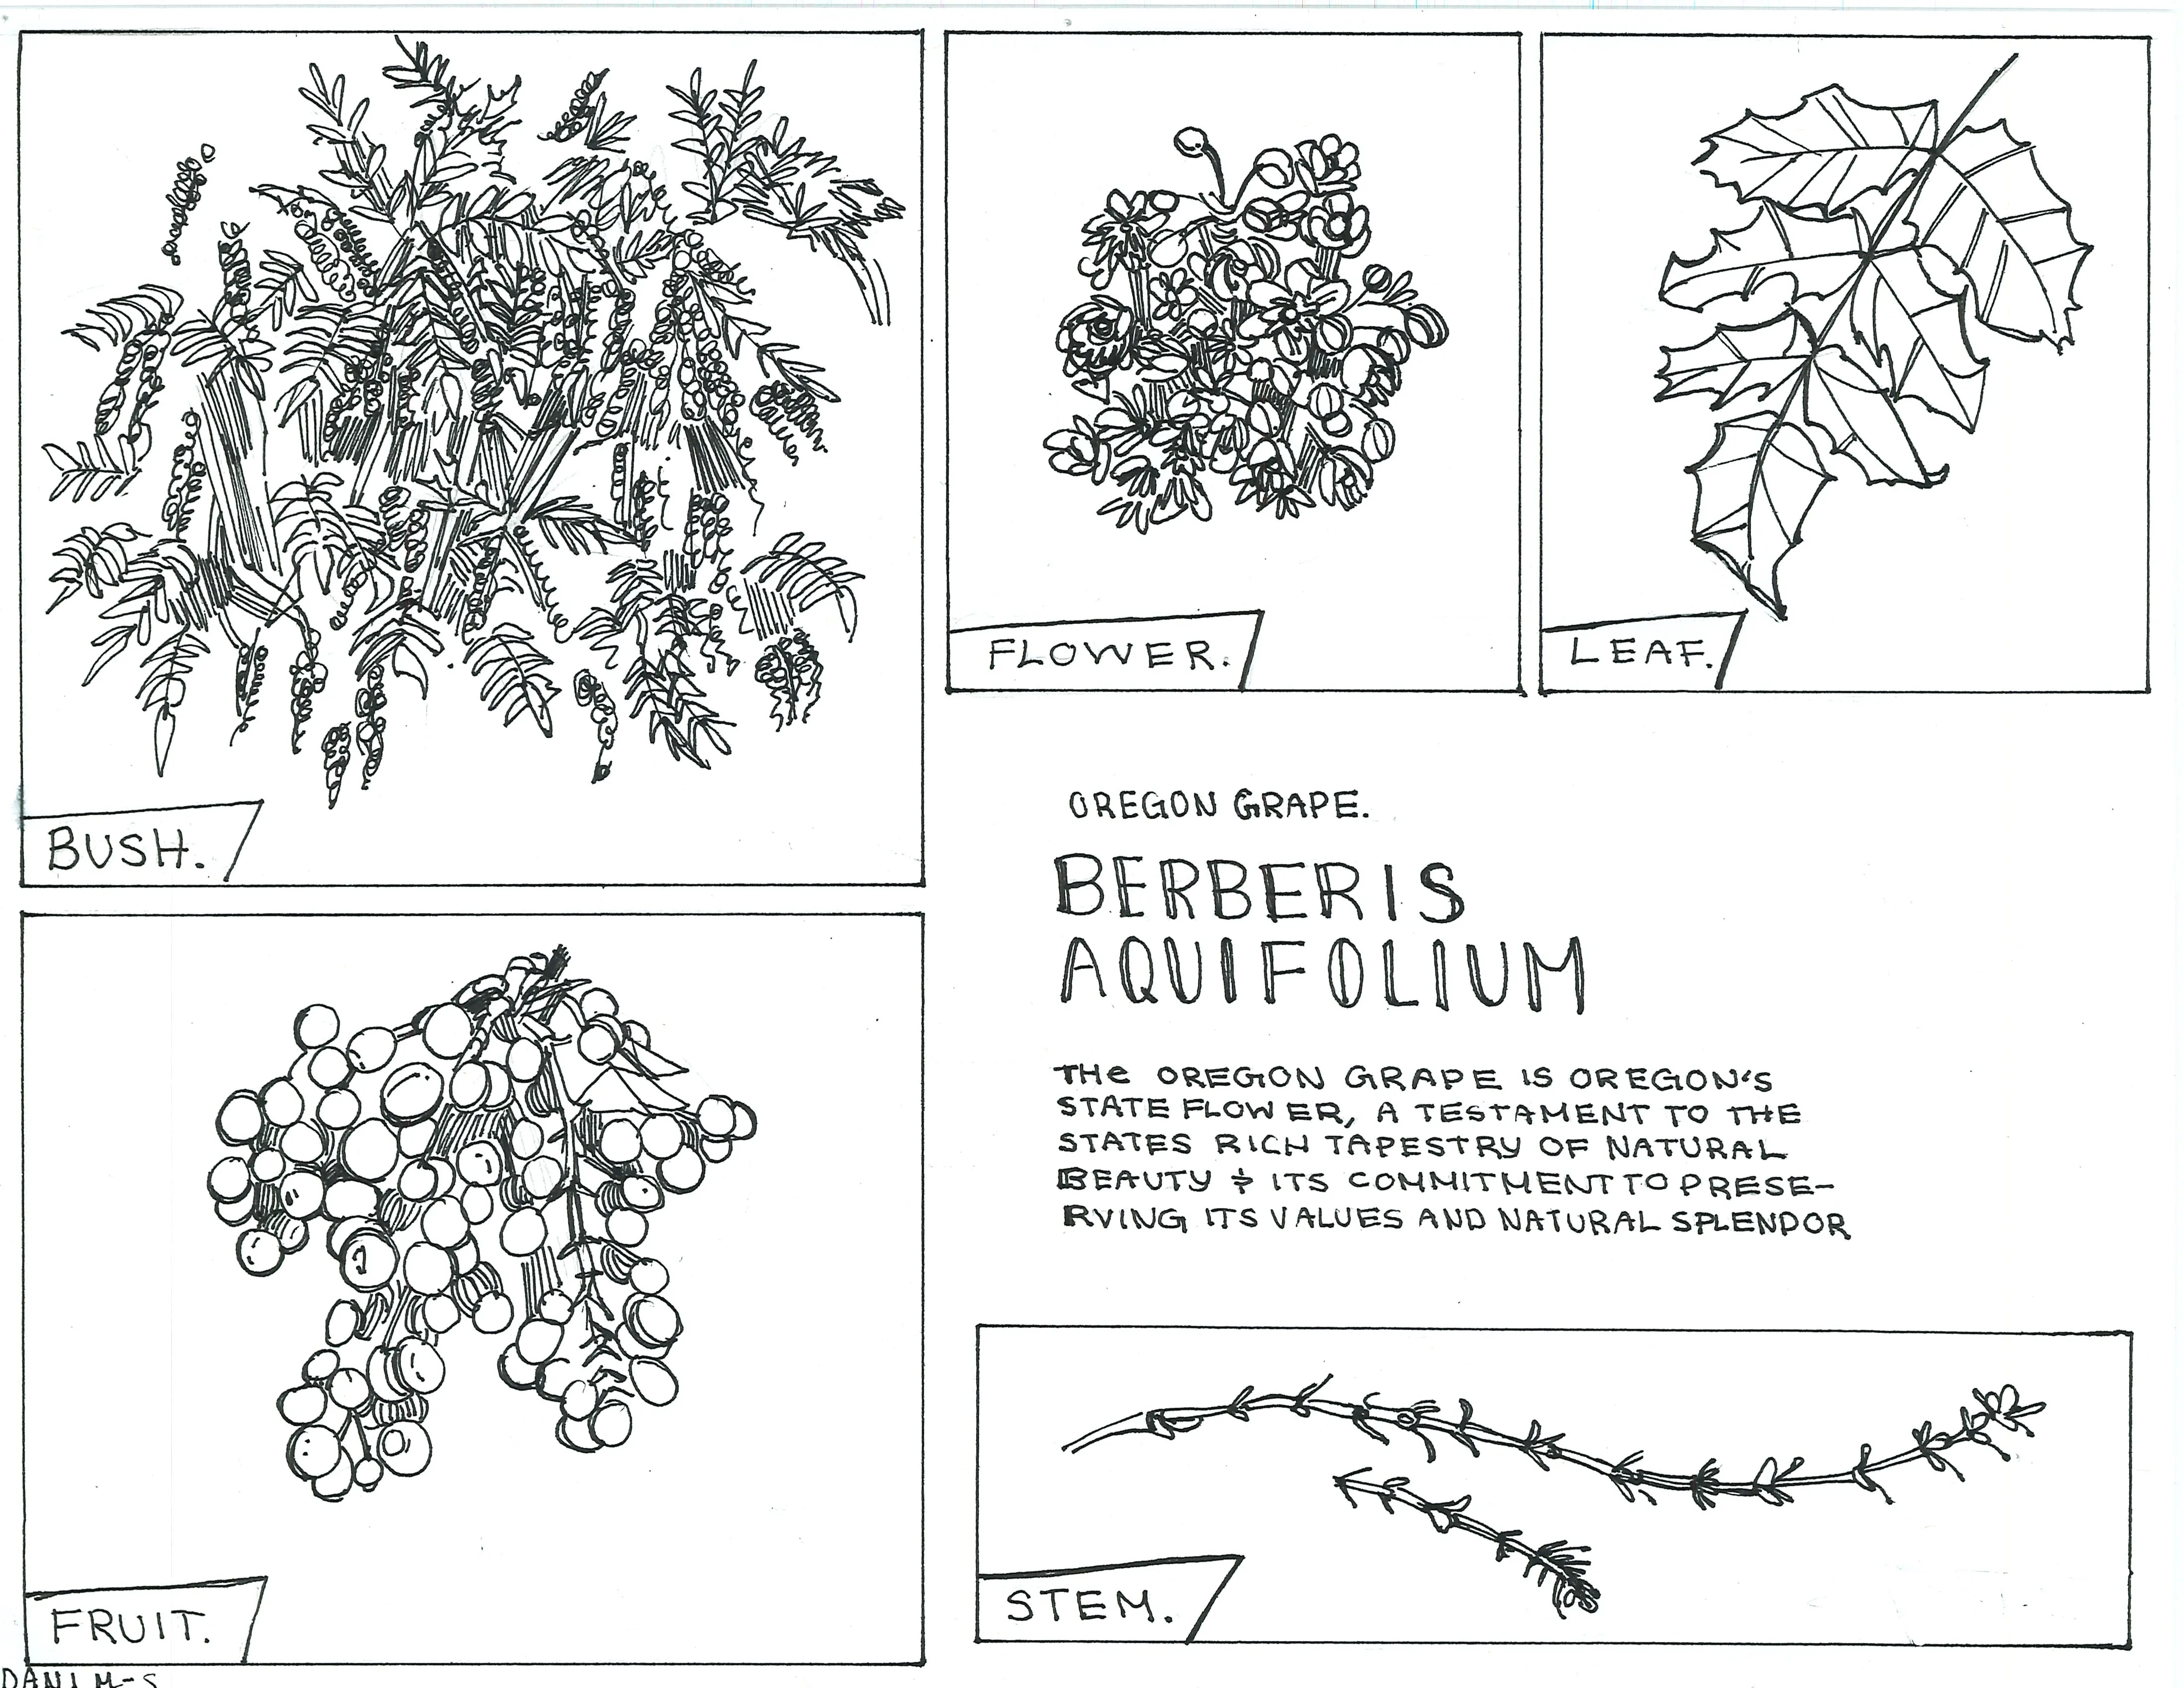 BUSH.
FLOWER.
LEAF.
OREGON GRAPE.
BERBERIS
AQUIFOLIUM
THe OREGON GRAPE IS OREGON'S
STATE FLOWER, A TESTAMENT TO THE
STATES RICH TAPESTRY OF NATURAL
BEAUTY & ITS COMMITMENT TO PRESE-
RVING ITS VALUES AND NATURAL SPLENDOR
FRUIT.
STEM.
DANI M-S